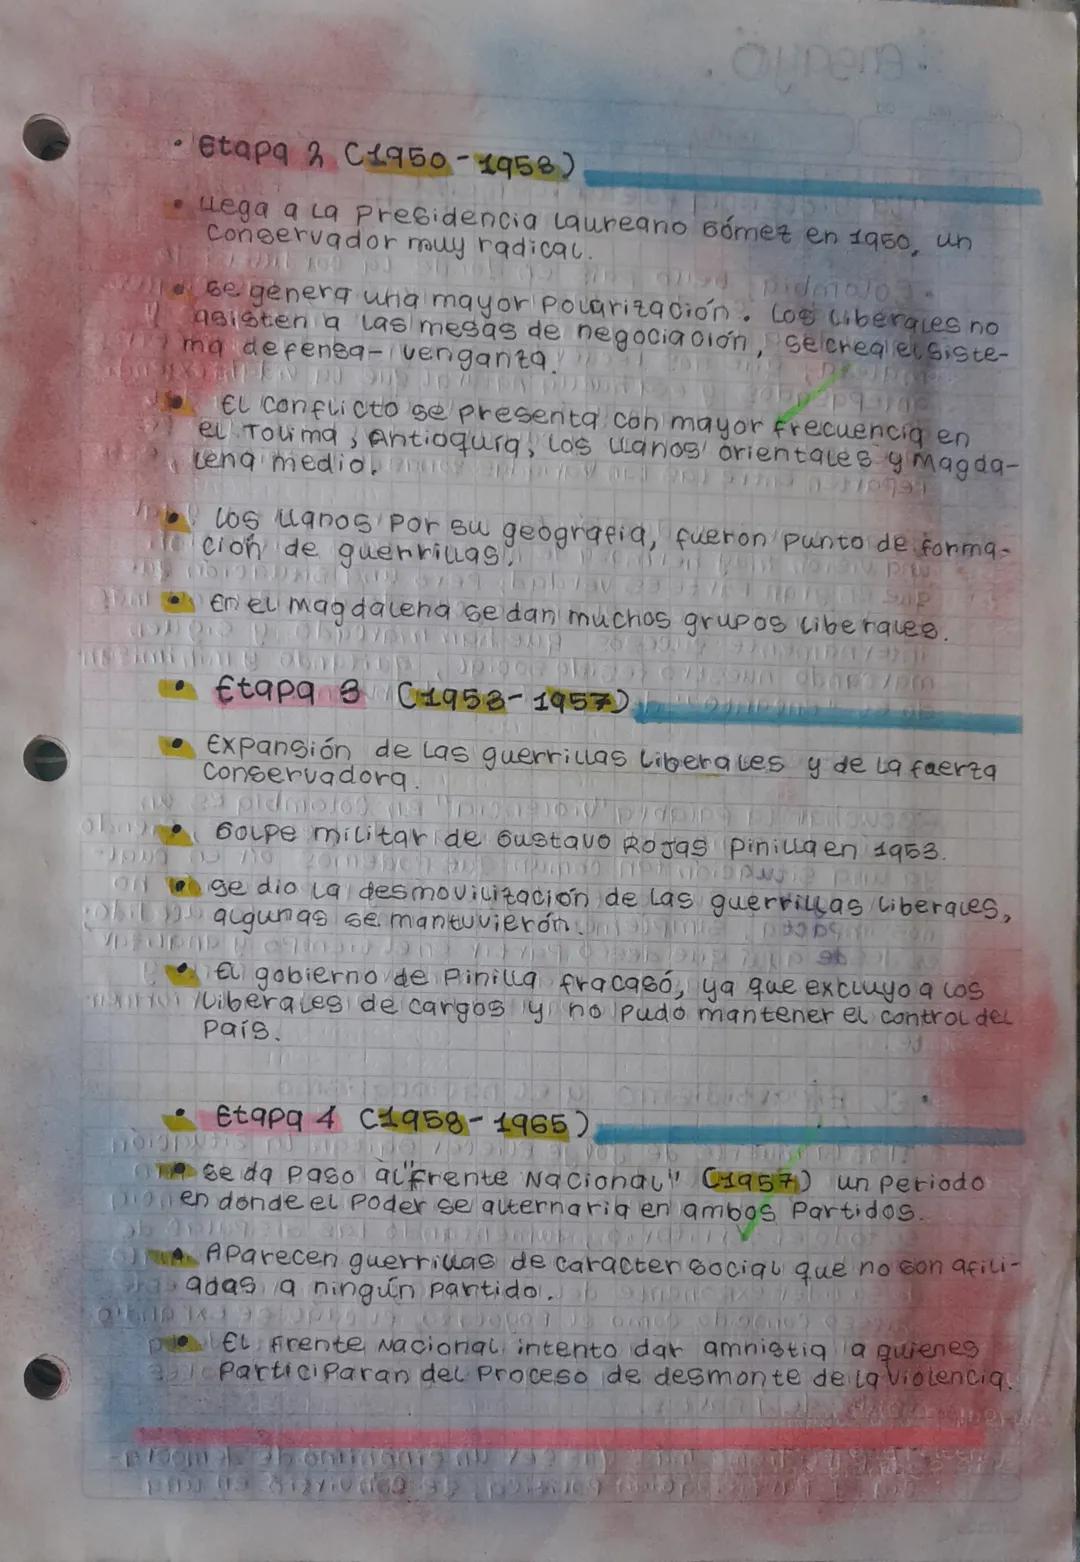 • Etapa 2 (1950-1953)
• Llega a la Presidencia Laureano Gómez en 1950, un
conservador muy radical.
• Se genera una mayor Polarización. Los liberales no
asisten a las mesas de negociación, se crea el siste-
ma defensa- venganza.
• El conflicto se presenta con mayor frecuencia en
el Tolima, Antioquia, los llanos orientales y Magda-
lena medio.
• Los llanos por su geografía, fueron punto de forma-
ción de guerrillas.
• En el magdalena se dan muchos grupos liberales.
• Etapa 3 (1953-1957)
• Expansión de las guerrillas liberales y de la fuerza
conservadora.
• Golpe militar de Gustavo Rojas Pinilla en 1953.
• Se dio la desmovilización de las guerrillas liberales,
algunas se mantuvierón.
• El gobierno de Pinilla fracasó, ya que excluyo a los
liberales de cargos y no pudo mantener el control del
País.
• Etapa 4 (1958-1965)
• Se da paso al "Frente Nacional" (1957) un periodo
en donde el Poder se alternaria en ambos Partidos.
• Aparecen guerrillas de caracter social que no son afili-
adas a ningún partido.
• El Frente Nacional intento dar amnistia a quienes
Participaran del Proceso de desmonte de la violencia.